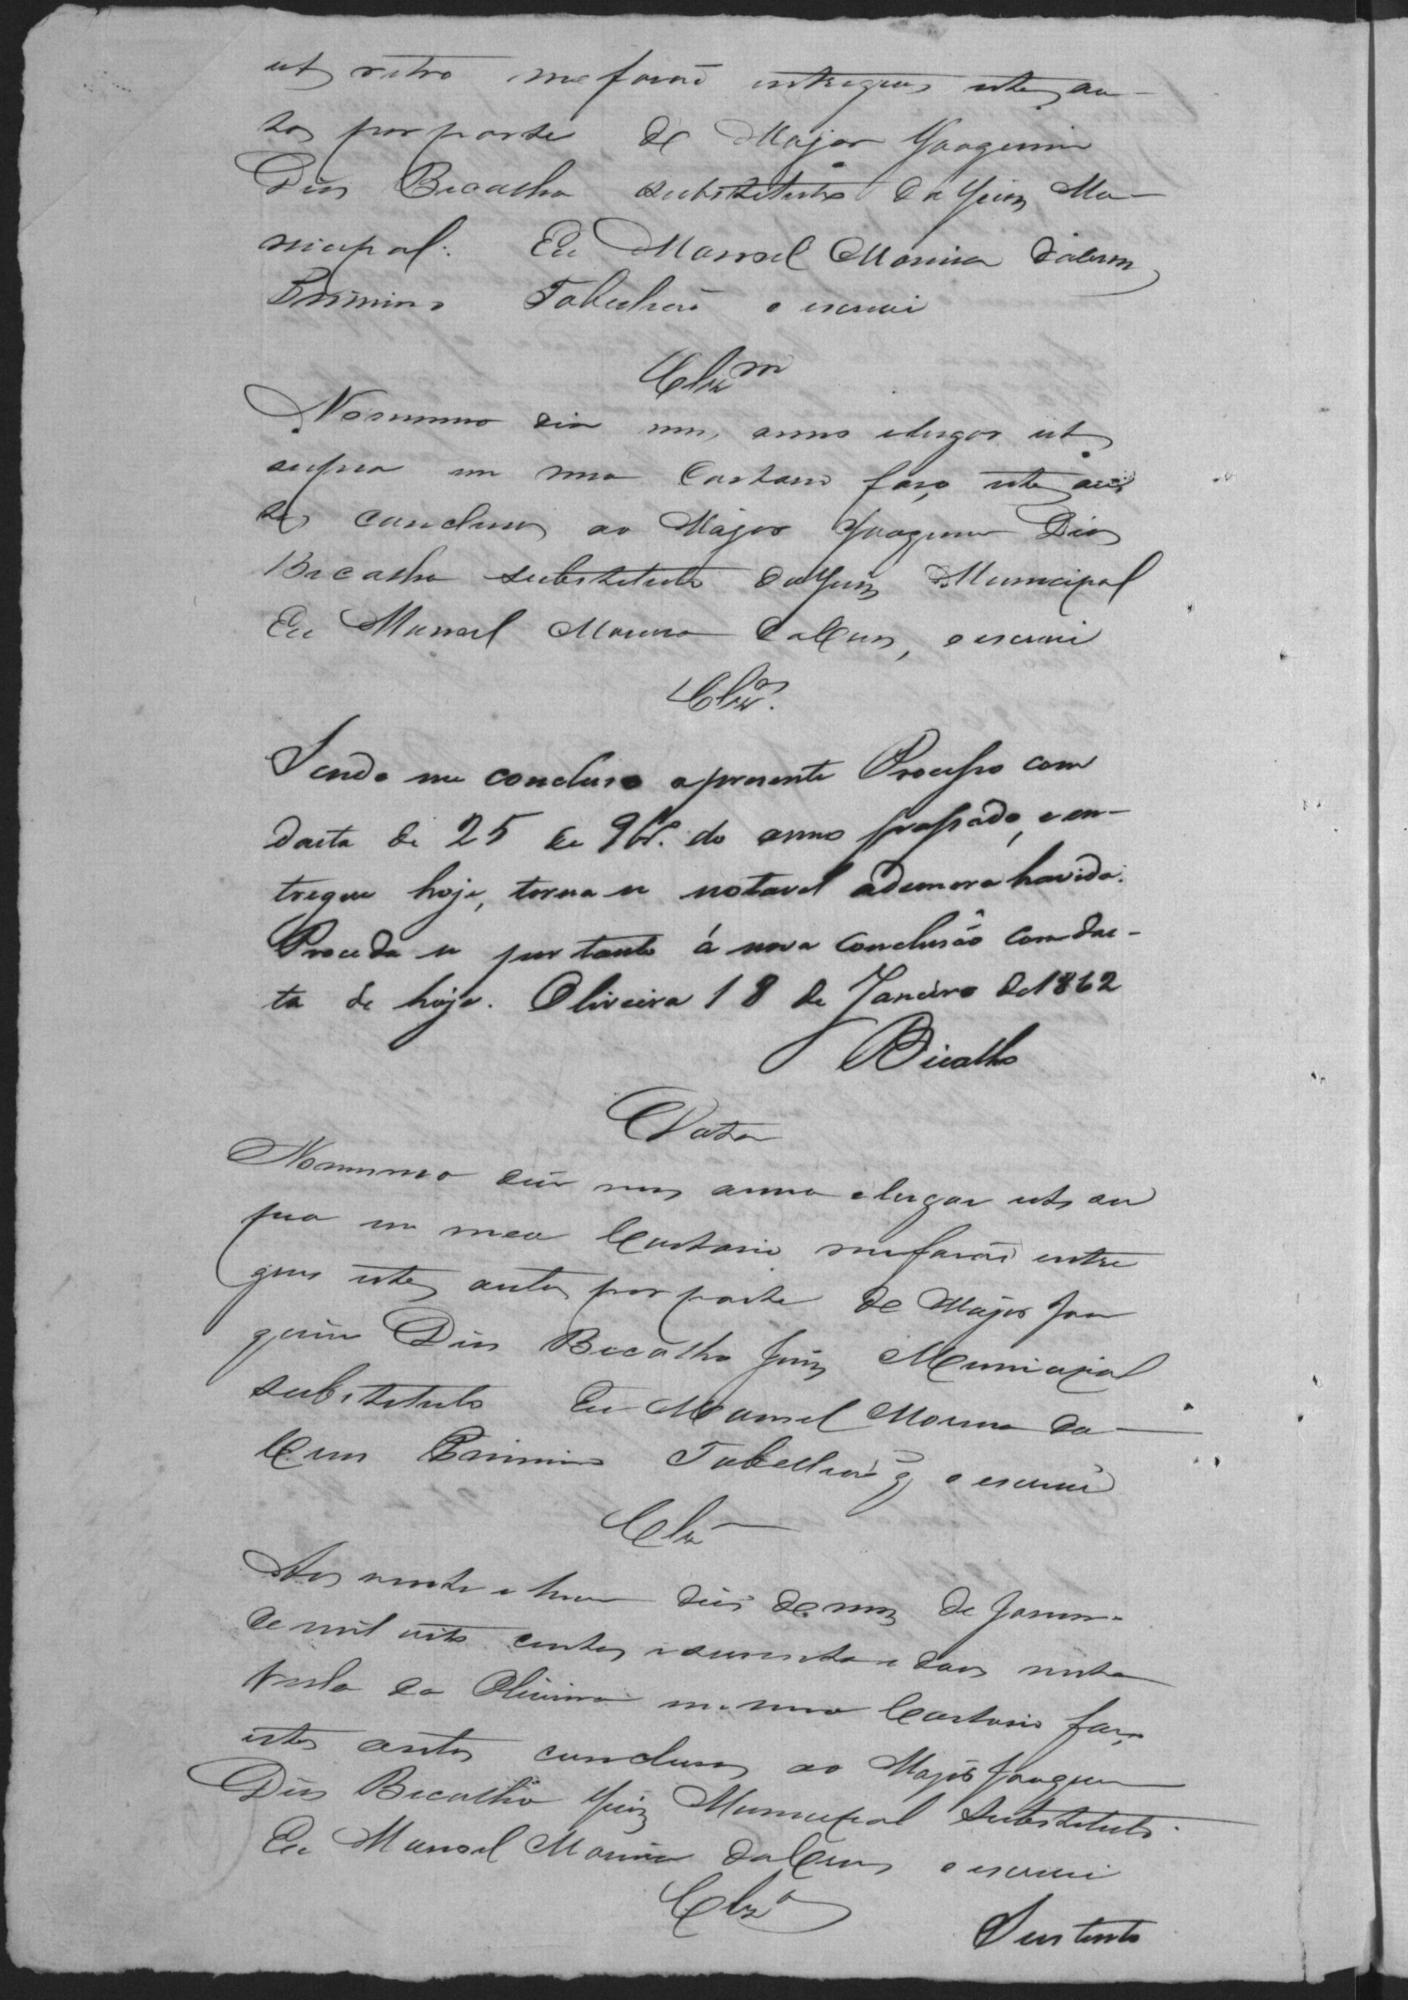 ut retro me farão entregues estes au-
tos por parte de Major Joaquim
Dias Bicalho substituto da Juiz Mu-
nicipal. Eu Manoel Moreira da Crus
Primeiro Tabelião o escrevi
Clz.m
No mesmo dia mes, anno e lugar ut
supra em meu Cartorio faço estes au
tos concluzos ao Major Joaquim Dias
Bicalho substituto da Juiz Municipal
Eu Manoel Moreira da Crus, o escrevi
Clzos.
Sendo me concluso o presente Processo com
dacta de 25 de 9br. do anno passado, e en-
tregue hoje, torna se notavel a demora havida.
Proceda se por tanto á nova conclusão com dac-
ta de hoje. Oliveira 18 de Janeiro de 1862
Bicalho
Data
No mesmo dia mes anno e lugar ut su
pra em meu Cartorio me farão entre
gues estes autos por parte de Major Joa
quim Dias Bicalho Juiz Municipal
substituto Eu Manoel Moreira da
Crus Primeiro Tabelião q o escrevi
Clz
Aos vinte e hum dias do mez de Janeiro
de mil oito centos e secenta e dous nesta
Villa da Oliveira em meu Cartorio faço
estes autos concluzos ao Major Joaquim
Dias Bicalho Juiz Municipal substituto.
Eu Manoel Moreira da Crus o escrevi
Clzo
Sustento